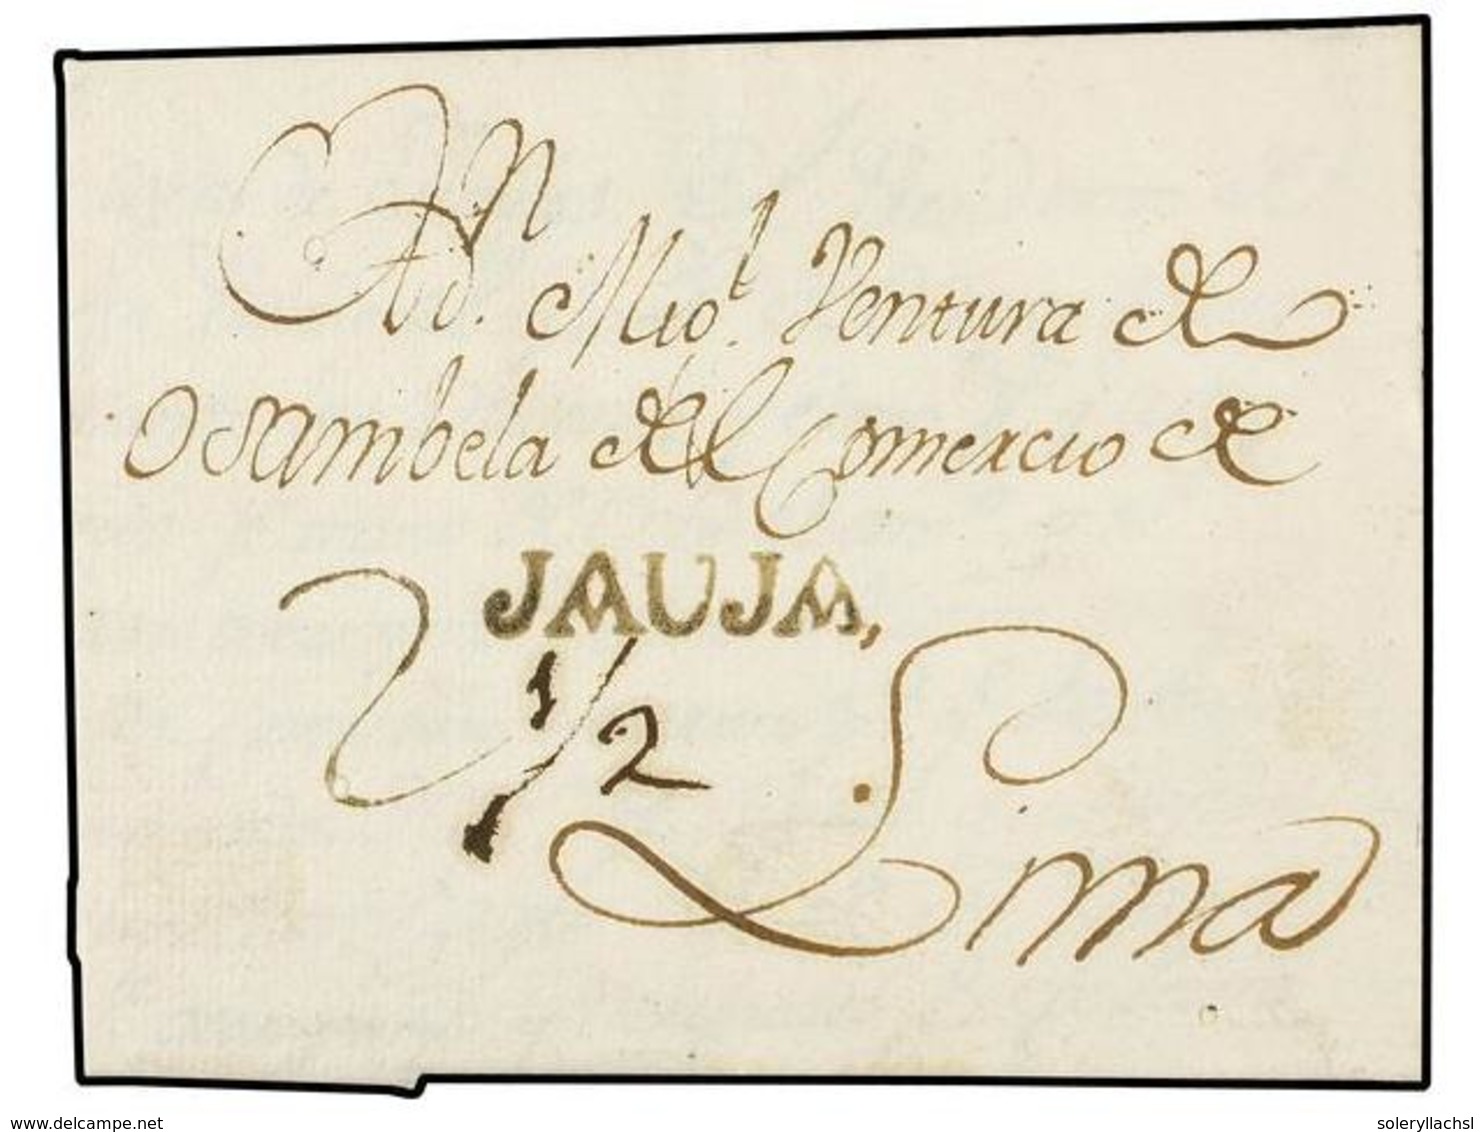 A d.n Mig.l Ventura de
Osambela del Comercio de
JAUJA,
1/2
Lima
www.delcampe.net
soleryllachsl